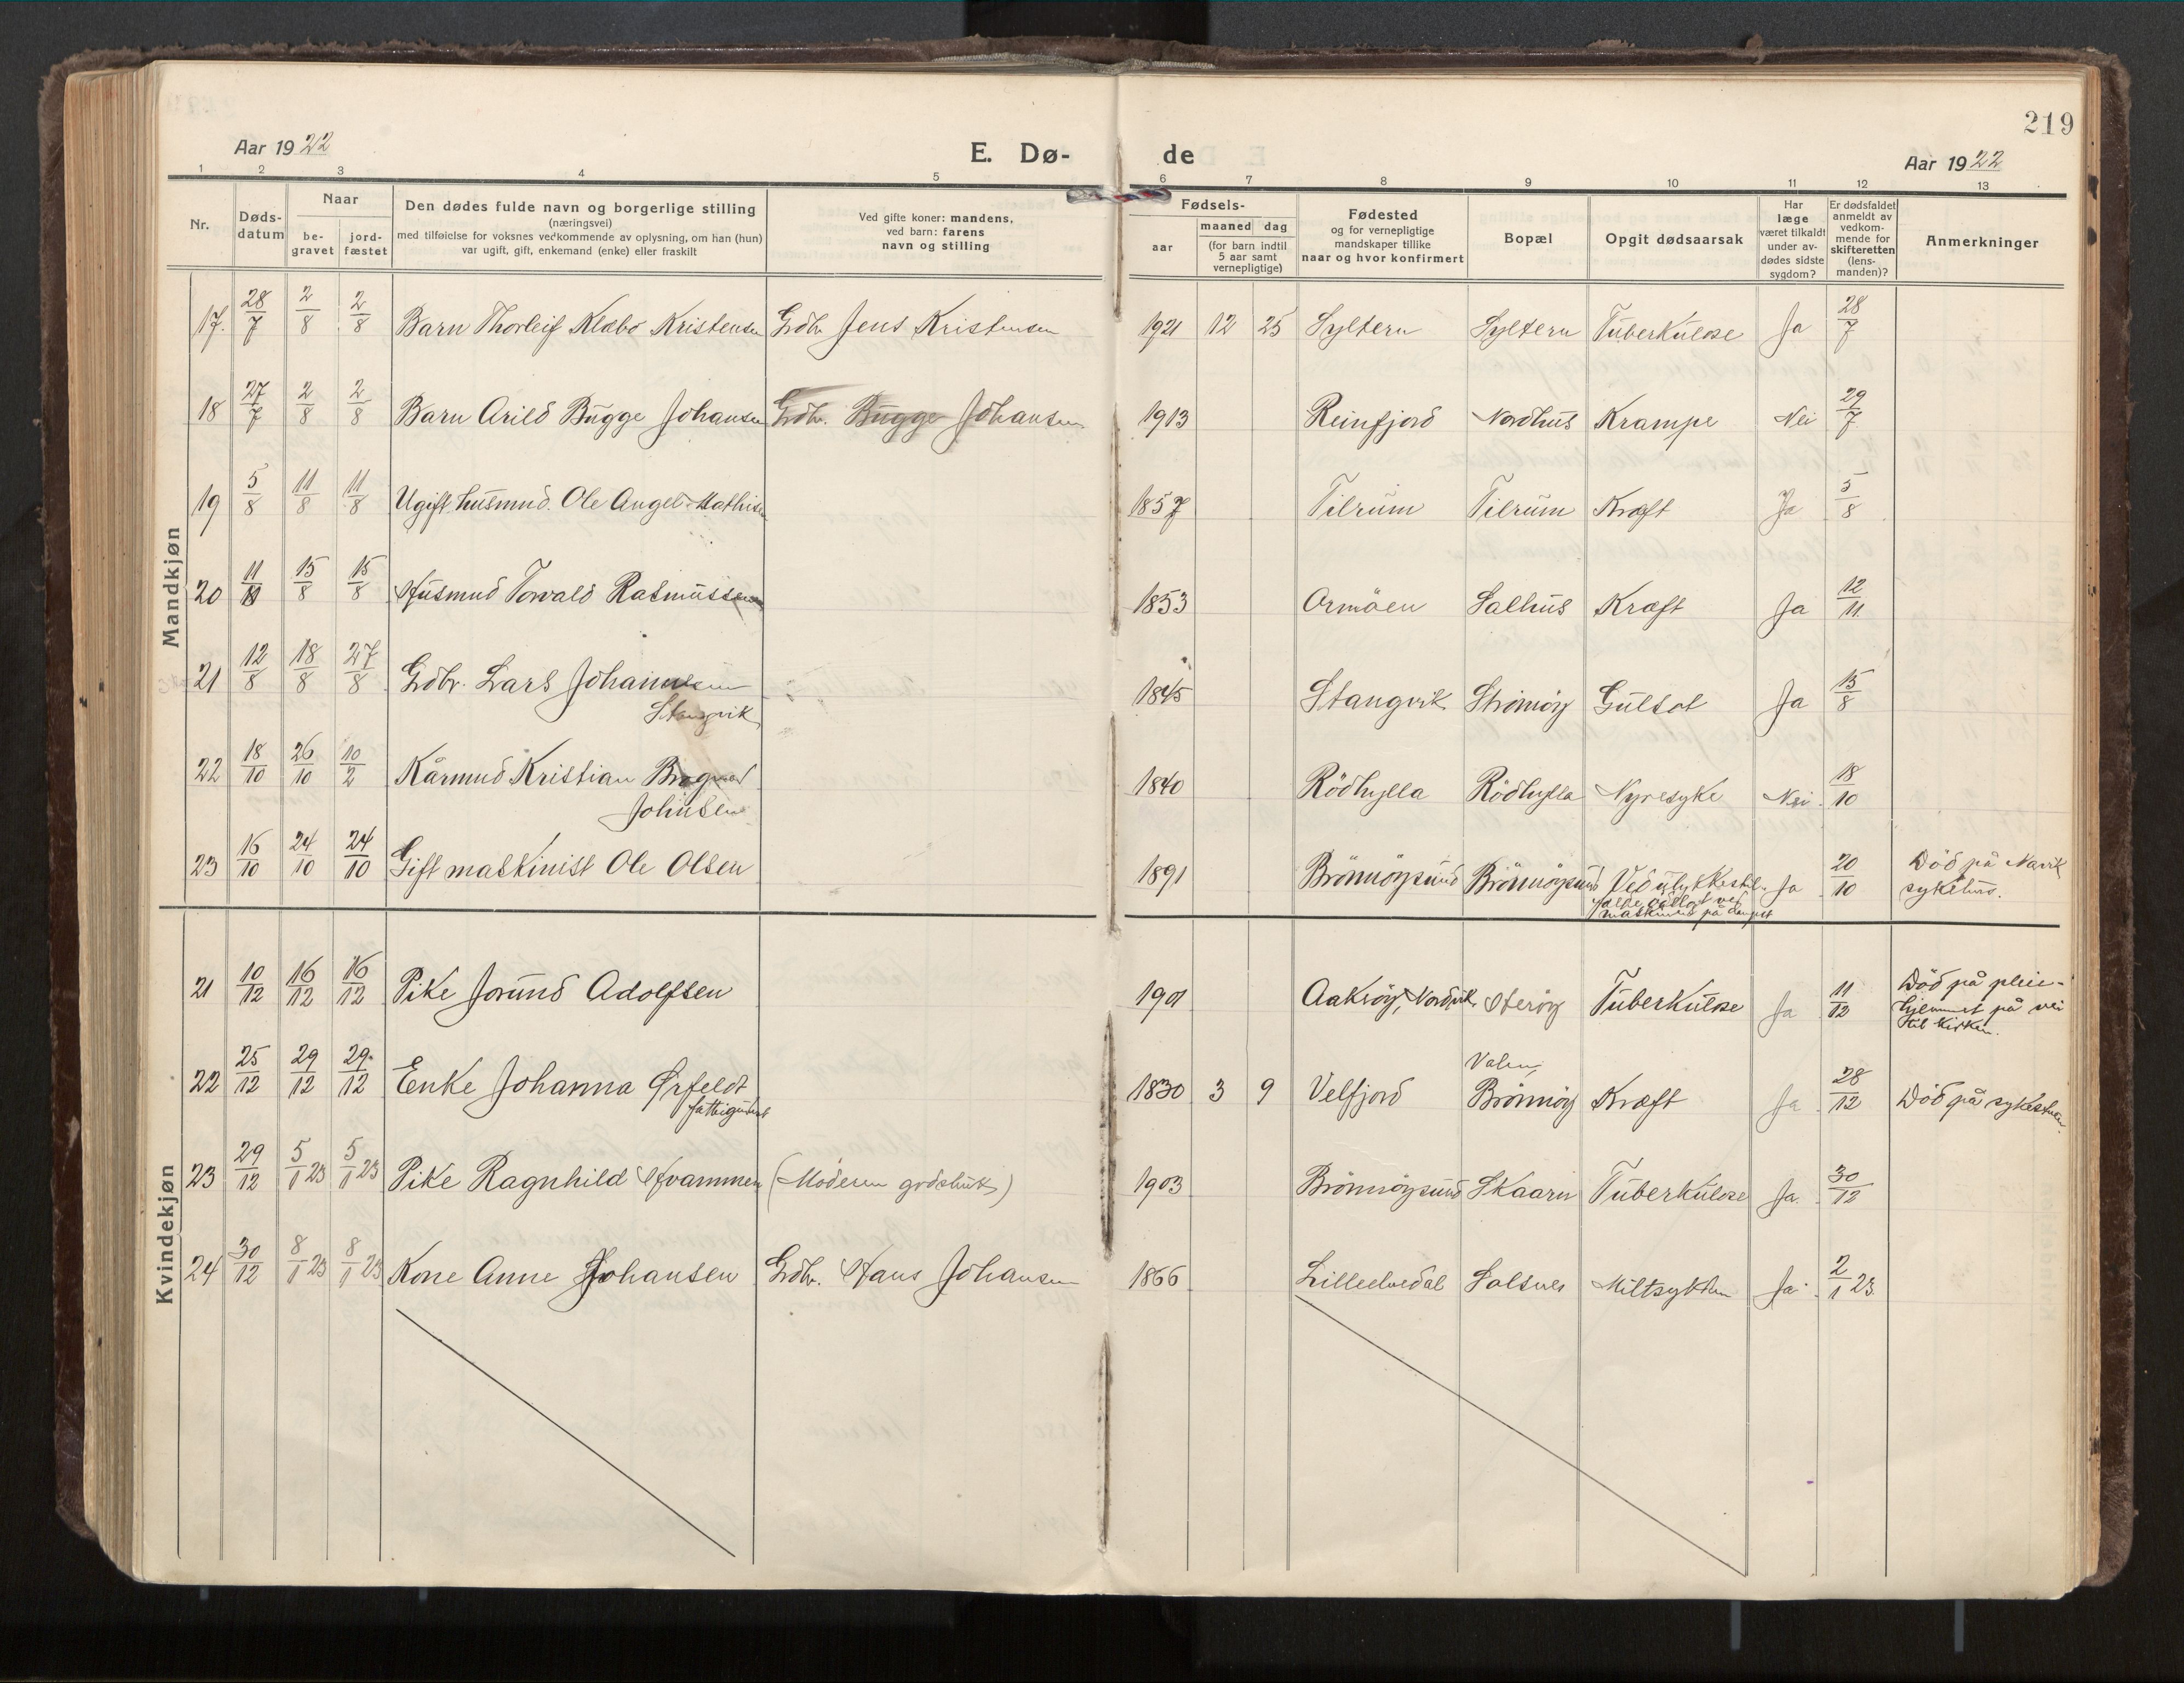 219
Aar 1922
E. Dø-
de
Aar 1922
1 2 3 4 5 6 7 8 9 10 11 12 13
Nr.
Døds-
datum
Naar
be-
gravet
jord-
fæstet
Den dødes fulde navn og borgerlige stilling
(næringsvei)
med tilføielse for voksnes vedkommende av oplysning, om han (hun)
var ugift, gift, enkemand (enke) eller fraskilt
Ved gifte koner: mandens,
ved barn: farens
navn og stilling
Fødsels-
aar
maaned dag
(for barn indtil
5 aar samt
vernepligtige)
Fødested
og for vernepligtige
mandskaper tillike
naar og hvor konfirmert
Bopæl
Opgit dødsaarsak
Har
læge
været tilkaldt
under av-
dødes sidste
sygdom?
Er dødsfaldet
anmeldt av
vedkom-
mende for
skifteretten
(lens-
manden)?
Anmerkninger
Mandkjøn
17. 28/7 2/8 2/8 Barn Thorleif Klæbo Kristensen Gdbr. Jens Kristensen 1921 12 25 Syltern Syltern Tuberkulose Ja 28/7
18 27/7 2/8 2/8 Barn Arild Bugge Johansen Gdbr. Bugge Johansen 1913 Reinfjord Nordhus Krampe Nei 29/7
19 5/8 11/8 11/8 Ugift husmnd. Ole Angel Mathisen 1857 Tilrum Tilrum Kræft Ja 5/8
20 11/ 15/8 15/8 Husmnd Torvald Rasmussen 1853 Ormöen Salhus Kræft Ja 12/11
21 12/8 18/8 27/8 Gdbr. Lars Johannesen 1845 Stangvik Strömöy Gulsot Ja 15/8
Stangvik
22 18/10 26/10 10/2 Kårmnd Kristian Bragnar 1840 Rödhylla Rödhylla Nyresyke Nei 18/10
Johnsen
23 16/10 24/10 24/10 Gift maskinist Ole Olsen 1891 Brönnöysund Brönnöysund Ved ulykkestil- Ja 20/10 Död på Narvik
sykehus.
maskineri på
Kvindekjøn
21 10/12 16/12 16/12 Pike Jorund Adolfsen 1901 Aakröy, Nordvik Teröy Tuberkulose Ja 11/12 Död på pleie-
hjemmet på vei
til kirken.
22 25/12 29/12 29/12 Enke Johanna Ørfeldt 1830 3 9 Velfjord Valen, Brönnöy Kræft Ja 28/12 Död på sykestuen.
23 29/12 5/1 23 5/1 23 Pike Ragnhild Hvammen (Moderen 1903 Brönnöysund Skaarn Tuberkulose Ja 30/12
24 30/12 8/1 23 8/1 23 Kone Anne Johansen Gdbr. Hans Johansen 1866 Lilleelvedal Salsnes Miltsykdom Ja 2/1 23